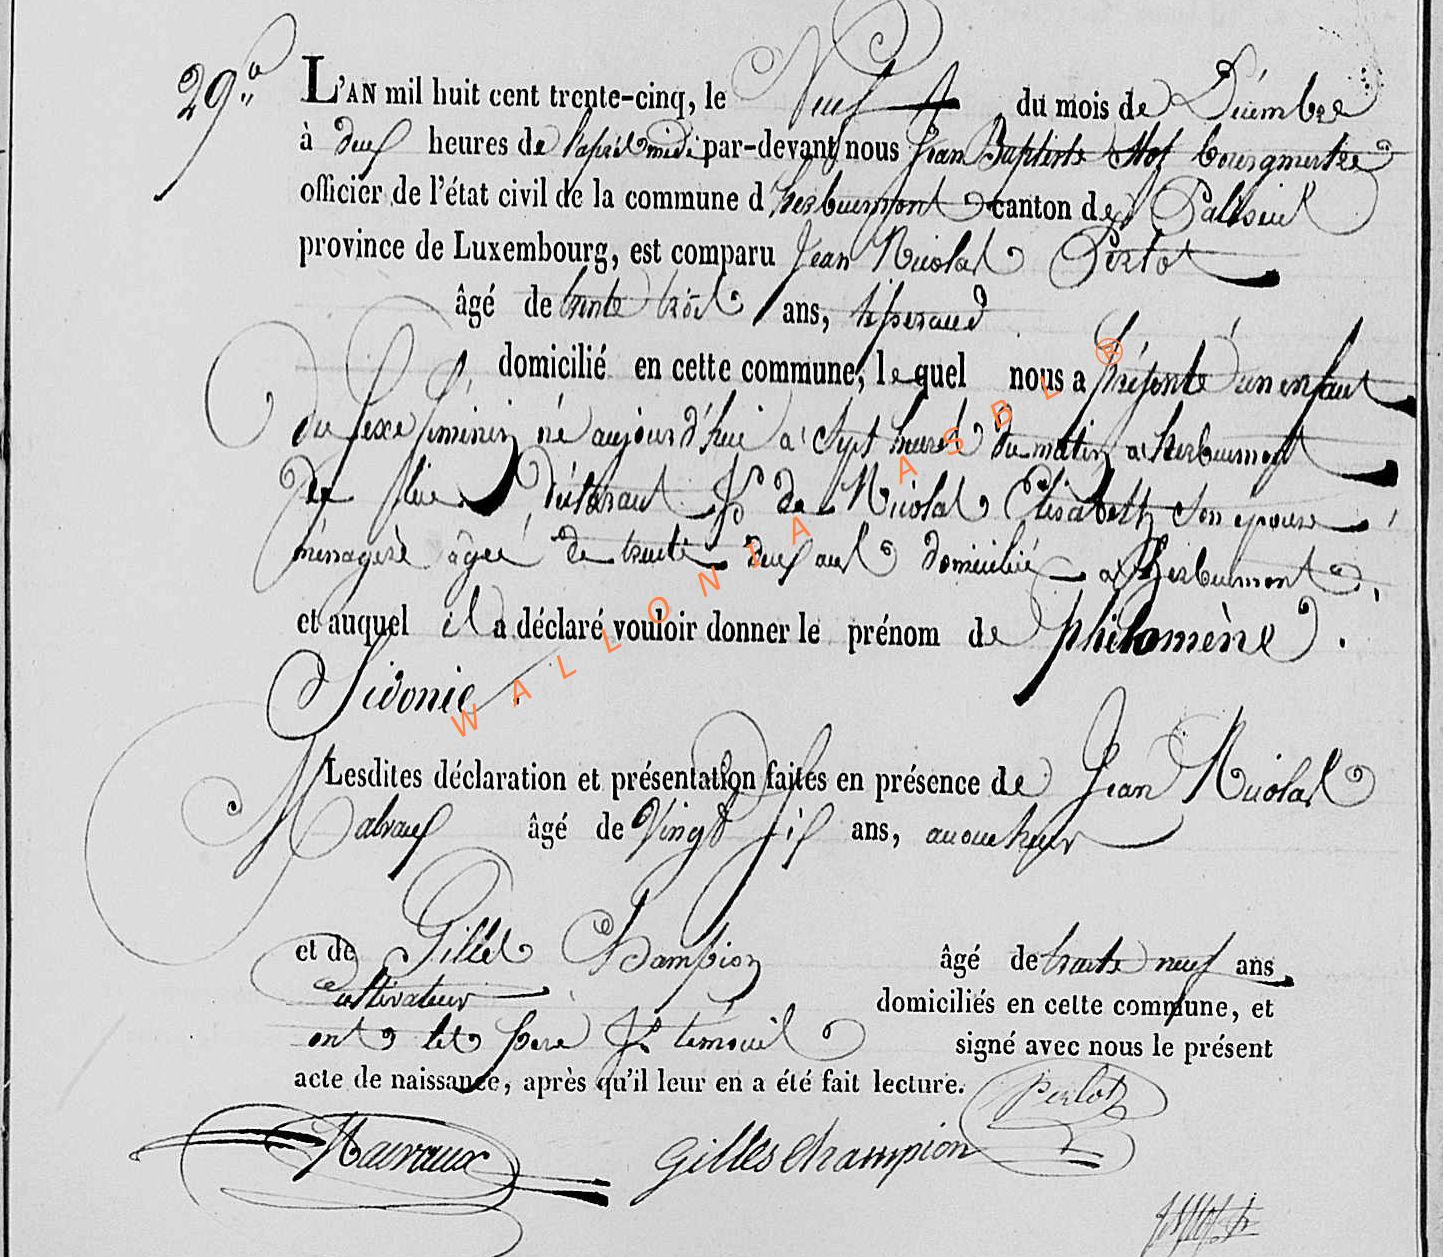 29.
L'AN mil huit cent trente-cinq, le Neuf du mois de Décembre
à deux heures de l'après midi par-devant nous Jean Baptiste bourgmestre
officier de l'état civil de la commune d'herbeumont canton de Paliseul
province de Luxembourg, est comparu Jean Nicolas Perlot
âgé de trente trois ans, tisserand
domicilié en cette commune, lequel nous a présenté un enfant
du sexe féminin né aujourd'hui à Sept heures du matin à herbeumont
de lui déclarant & de Nicolas Elisabeth son épouse
ménagere âgée de trente deux ans domiciliée à herbeumont
et auquel il a déclaré vouloir donner le prénom de philomène
Sidonie
Lesdites déclaration et présentation faites en présence de Jean Nicolas
âgé de Vingt six ans,
et de Gilles Champion âgé de trente neuf ans
cultivateur domiciliés en cette commune, et
ont les père & témoins signé avec nous le présent
acte de naissance, après qu'il leur en a été fait lecture.
Perlot
Gilles Champion
WALLONIA ASBL ®